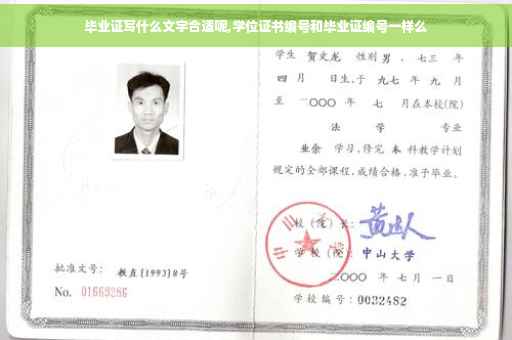 毕业证写什么文字合适呢,学位证书编号和毕业证编号一样么
学生 贺文龙 性别 男 、七三 年
四 月 日生,于 九七 年 九 月
至 二〇〇〇 年 七 月在本校(院)
法 学 专业
业余 学习,修完 本 科教学计划
规定的全部课程,成绩合格,准予毕业。
校(院)长:
学校(院):中山大学
二〇〇〇 年 七 月 一 日
学校编号:0032482
批准文号: 教直[1993]8号
No. 01669286